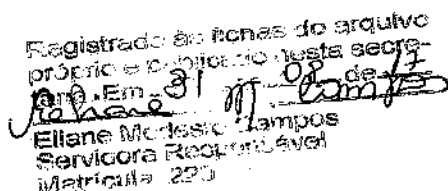 Registrado às fichas do arquivo
próprio e publicado nesta secre-
taria. Em 31 08 de 17
Eliane Campos
Servidora Responsável
Matrícula 220